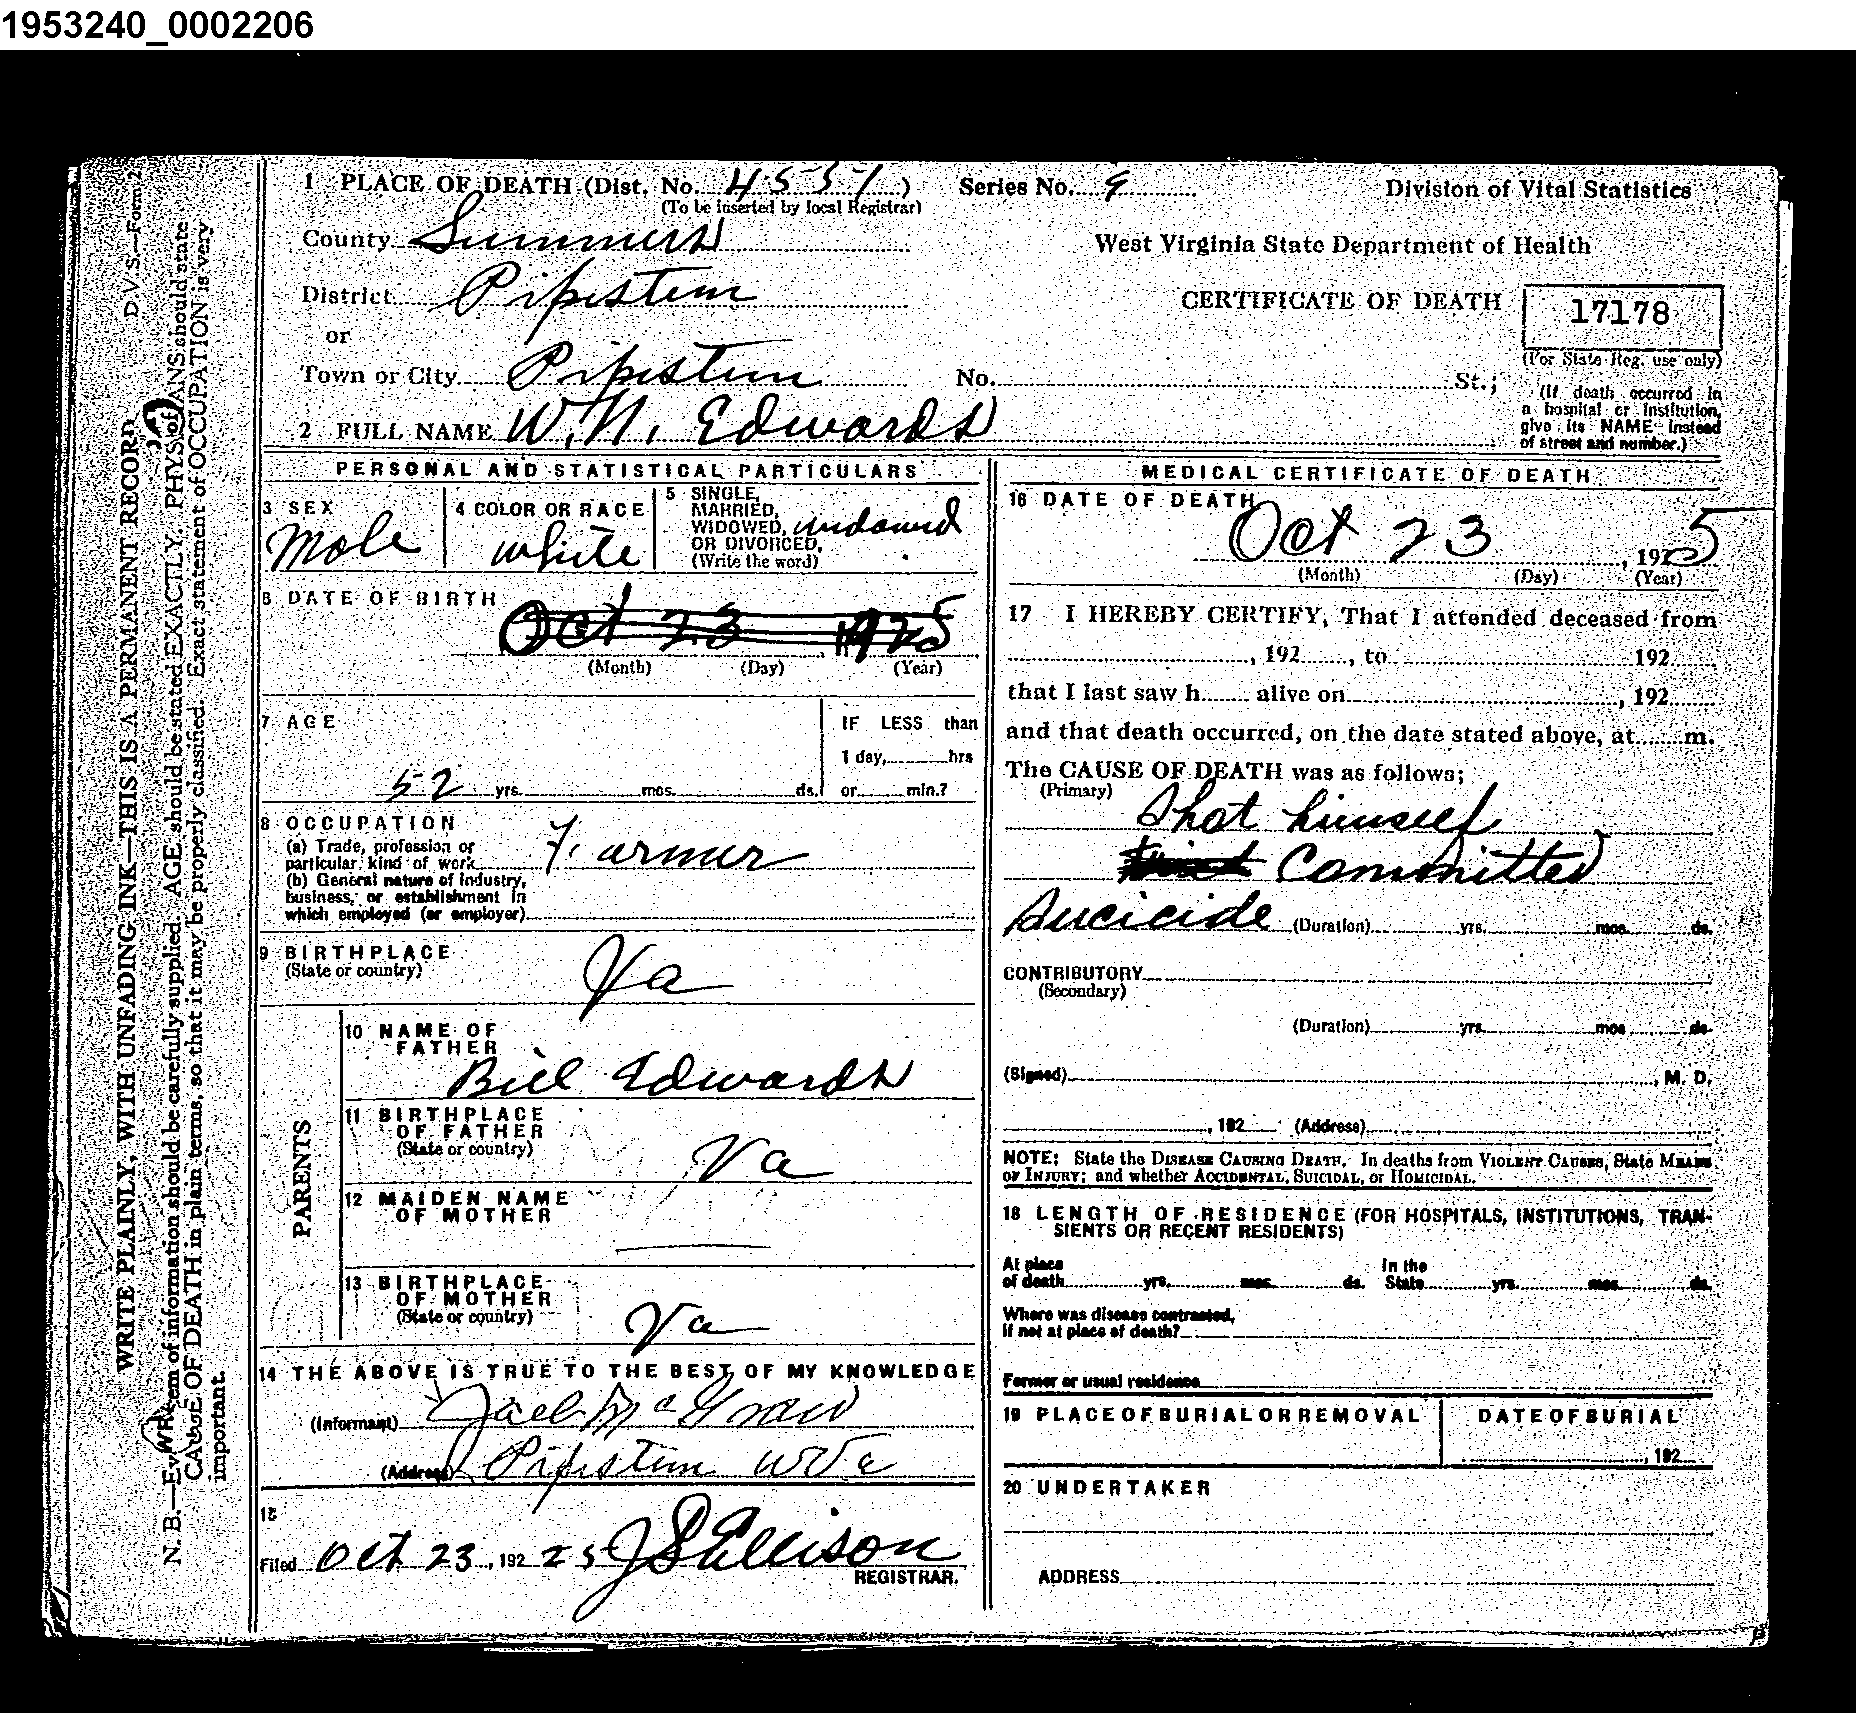 1953240_0002206
1 PLACE OF DEATH (Dist. No. 4551) Series No. 9 Division of Vital Statistics
(To be inserted by local Registrar)
County Summers West Virginia State Department of Health
District Pipistem CERTIFICATE OF DEATH 17178
or (For State Reg. use only)
Town or City Pipistem No. St.; (If death occurred in
a hospital or Institution,
give its NAME instead
of street and number.)
2 FULL NAME W. N. Edwards
PERSONAL AND STATISTICAL PARTICULARS
3 SEX
Male
4 COLOR OR RACE
white
5 SINGLE,
MARRIED,
WIDOWED, widowed
OR DIVORCED,
(Write the word)
6 DATE OF BIRTH
Oct 23 1925
(Month) (Day) (Year)
7 AGE
52 yrs. mos. ds.
IF LESS than
1 day, hrs
or min.?
8 OCCUPATION
(a) Trade, profession or
particular kind of work Farmer
(b) General nature of industry,
business, or establishment in
which employed (or employer)
9 BIRTHPLACE
(State or country) Va
PARENTS
10 NAME OF
FATHER
Bill Edwards
11 BIRTHPLACE
OF FATHER
(State or country) Va
12 MAIDEN NAME
OF MOTHER
13 BIRTHPLACE
OF MOTHER
(State or country) Va
14 THE ABOVE IS TRUE TO THE BEST OF MY KNOWLEDGE
(Informant) McGraw
(Address) Pipistem W Va
15
Filed Oct 23, 192 25 J S Ellison
REGISTRAR.
MEDICAL CERTIFICATE OF DEATH
16 DATE OF DEATH
Oct 23, 1925
(Month) (Day) (Year)
17 I HEREBY CERTIFY, That I attended deceased from
, 192 , to 192
that I last saw h alive on , 192
and that death occurred, on the date stated above, at m.
The CAUSE OF DEATH was as follows;
(Primary)
Shot himself
Committed
Sucicide (Duration) yrs. mos. ds.
CONTRIBUTORY
(Secondary)
(Duration) yrs. mos ds.
(Signed) , M. D.
, 192 (Address)
NOTE: State the DISEASE CAUSING DEATH. In deaths from VIOLENT CAUSES, State MEANS
OF INJURY; and whether ACCIDENTAL, SUICIDAL, or HOMICIDAL.
18 LENGTH OF RESIDENCE (FOR HOSPITALS, INSTITUTIONS, TRAN-
SIENTS OR RECENT RESIDENTS)
At place In the
of death yrs. mos. ds. State yrs. mos. ds.
Where was disease contracted,
if not at place of death?
Former or usual residence
19 PLACE OF BURIAL OR REMOVAL DATE OF BURIAL
, 192
20 UNDERTAKER
ADDRESS
D. V. S.—Form 2
WRITE PLAINLY, WITH UNFADING INK—THIS IS A PERMANENT RECORD
N. B.—Every item of information should be carefully supplied. AGE should be stated EXACTLY. PHYSICIANS should state
CAUSE OF DEATH in plain terms, so that it may be properly classified. Exact statement of OCCUPATION is very
important.